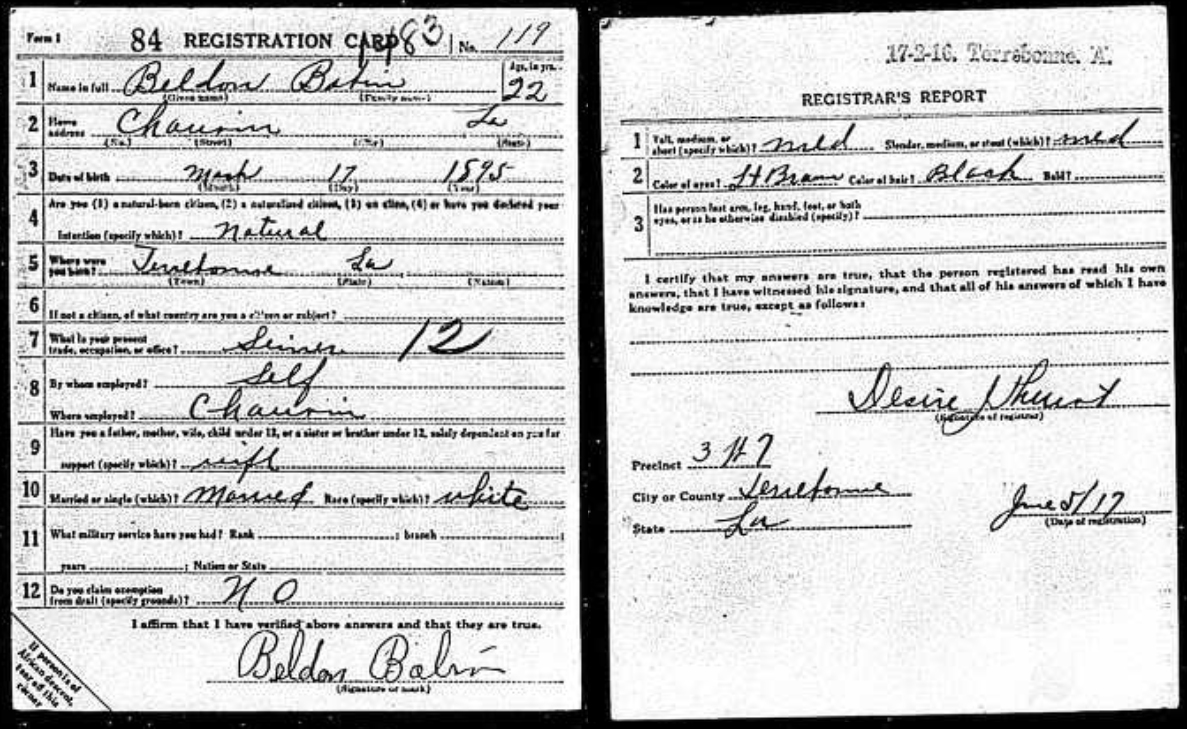 Form 1 84 REGISTRATION CARD 183 No. 119
1 Name in full Beldon Babin Age, in yrs. 22
(Given name) (Family name)
2 Home address Chauvin La
(No.) (Street) (City) (State)
3 Date of birth March 17 1895
(Month) (Day) (Year)
4 Are you (1) a natural-born citizen, (2) a naturalized citizen, (3) an alien, (4) or have you declared your
intention (specify which)? Natural
5 Where were you born? Terrebonne La
(Town) (State) (Nation)
6
If not a citizen, of what country are you a citizen or subject?
7 What is your present trade, occupation, or office? Seiner 12
8 By whom employed? Self
Where employed? Chauvin
9 Have you a father, mother, wife, child under 12, or a sister or brother under 12, solely dependent on you for
support (specify which)? wife
10 Married or single (which)? Married Race (specify which)? white
11 What military service have you had? Rank ; branch ;
years ; Nation or State
12 Do you claim exemption from draft (specify grounds)? NO
I affirm that I have verified above answers and that they are true.
Beldon Babin
(Signature or mark)
If person is of
African descent,
tear off this
corner
17-2-16. Terrebonne. A.
REGISTRAR'S REPORT
1 Tall, medium, or short (specify which)? med Slender, medium, or stout (which)? med
2 Color of eyes? Lt Brown Color of hair? Black Bald?
3 Has person lost arm, leg, hand, foot, or both
eyes, or is he otherwise disabled (specify)?
I certify that my answers are true, that the person registered has read his own
answers, that I have witnessed his signature, and that all of his answers of which I have
knowledge are true, except as follows:
Desire
(Signature of registrar)
Precinct 3
City or County Terrebonne
State La
June 5/17
(Date of registration)